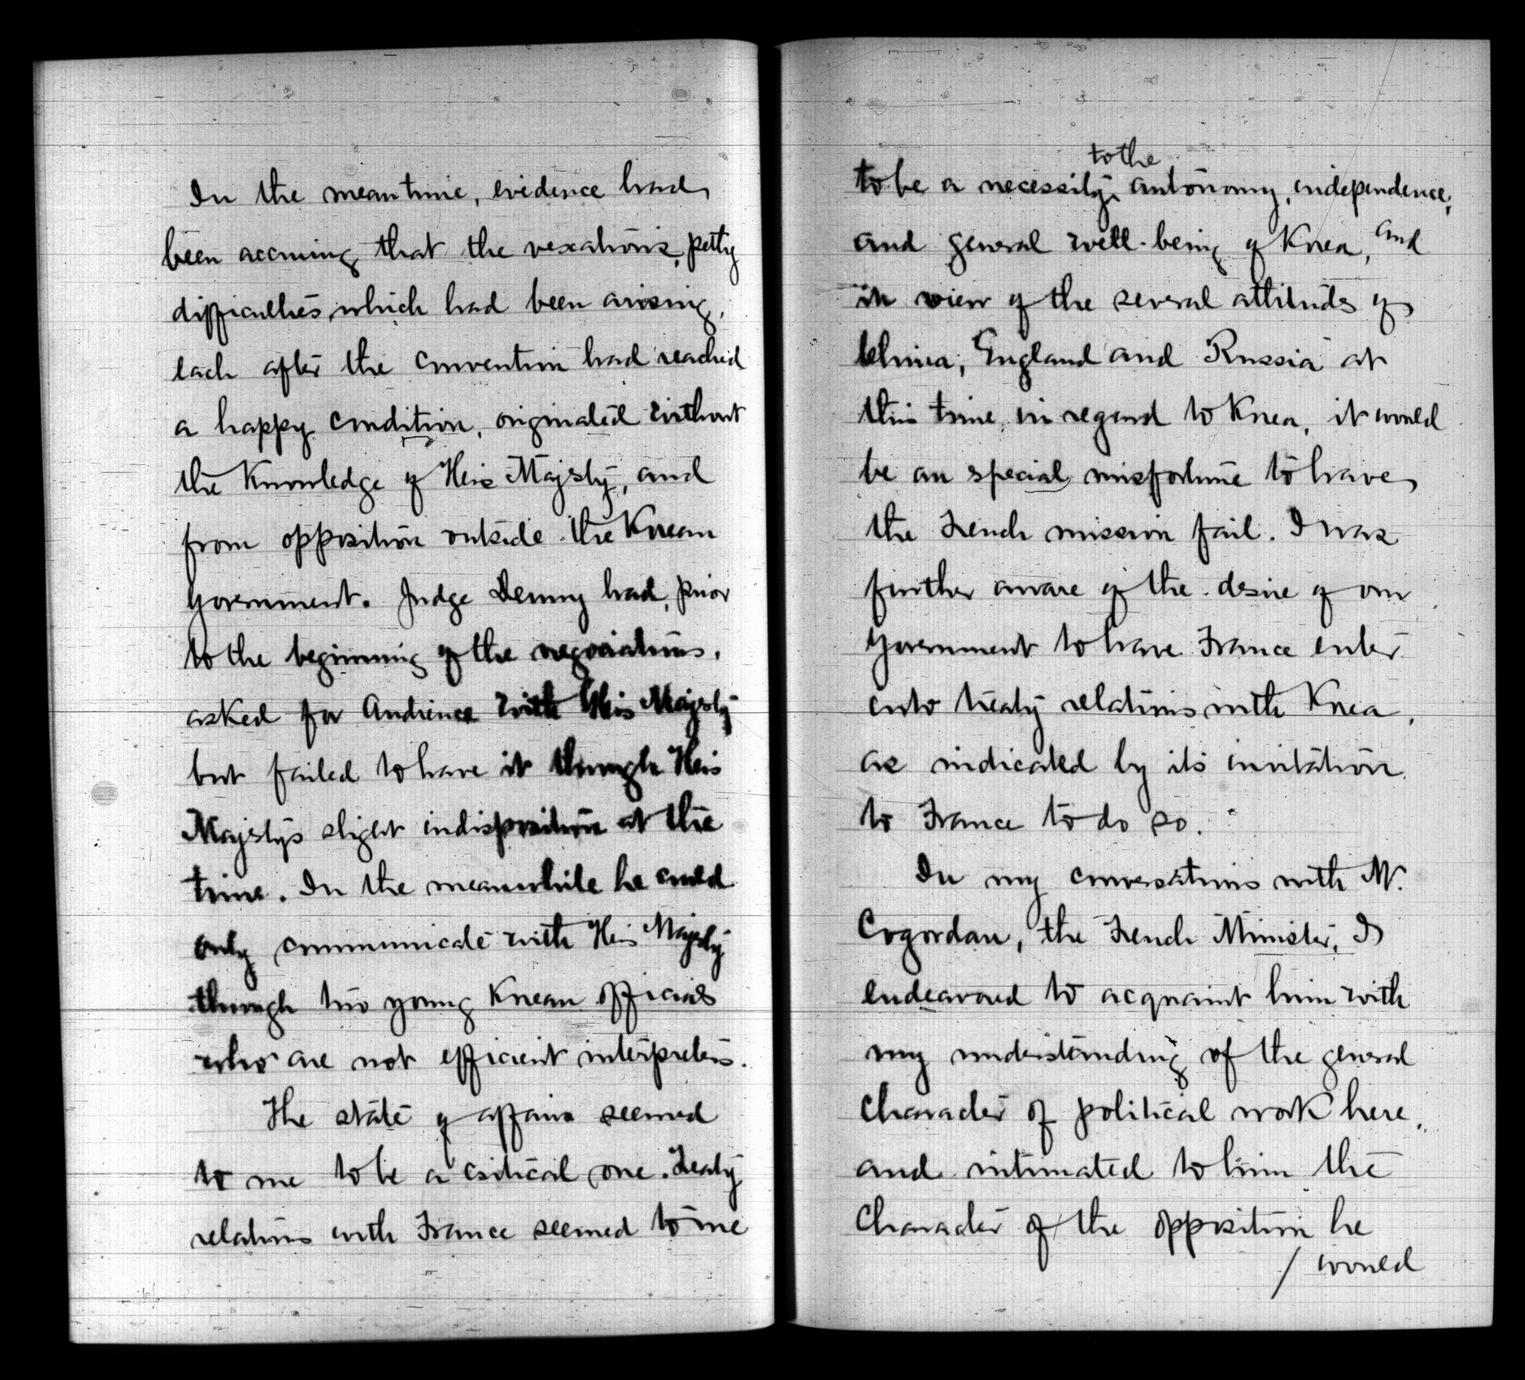 In the meantime, evidence had
been accruing that the vexations, petty
difficulties which had been arising,
each after the convention had reached
a happy condition, originated without
the Knowledge of His Majesty, and
from opposition outside the Korean
Government. Judge Denny had, prior
to the beginning of the negociations,
asked for Audience with His Majesty
but failed to have it through His
Majesty's slight indisposition at the
time. In the meanwhile he could
only communicate with His Majesty
through two young Korean officials
who are not efficient interpreters.
The state of affairs seemed
to me to be a critical one. Treaty
relations with France seemed to me
to the
to be a necessity autonomy, independence,
and general well-being of Korea, and
in view of the several attitudes of
China, England and Russia at
this time, in regard to Korea, it would
be an special misfortune to have
the French mission fail. I was
further aware of the desire of our
Government to have France enter
into treaty relations with Korea,
as indicated by its invitation
to France to do so.
In my conversations with M.
Cogordan, the French Minister, I
endeavored to acquaint him with
my understanding of the general
character of political work here,
and intimated to him the
character of the opposition he
/ would